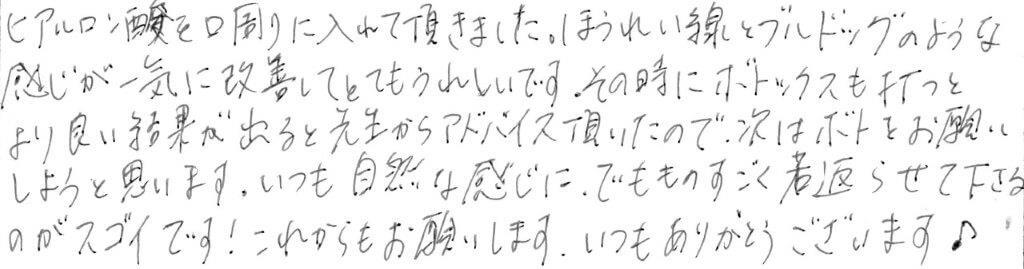 ヒアルロン酸を口周りに入れて頂きました。ほうれい線とブルドッグのような
感じが一気に改善してとてもうれしいです。その時にボトックスも打つと
より良い結果が出ると先生からアドバイス頂いたので、次はボトをお願い
しようと思います。いつも自然な感じに、でもものすごく若返らせて下さる
のがスゴイです!これからもお願いします。いつもありがとうございます♪